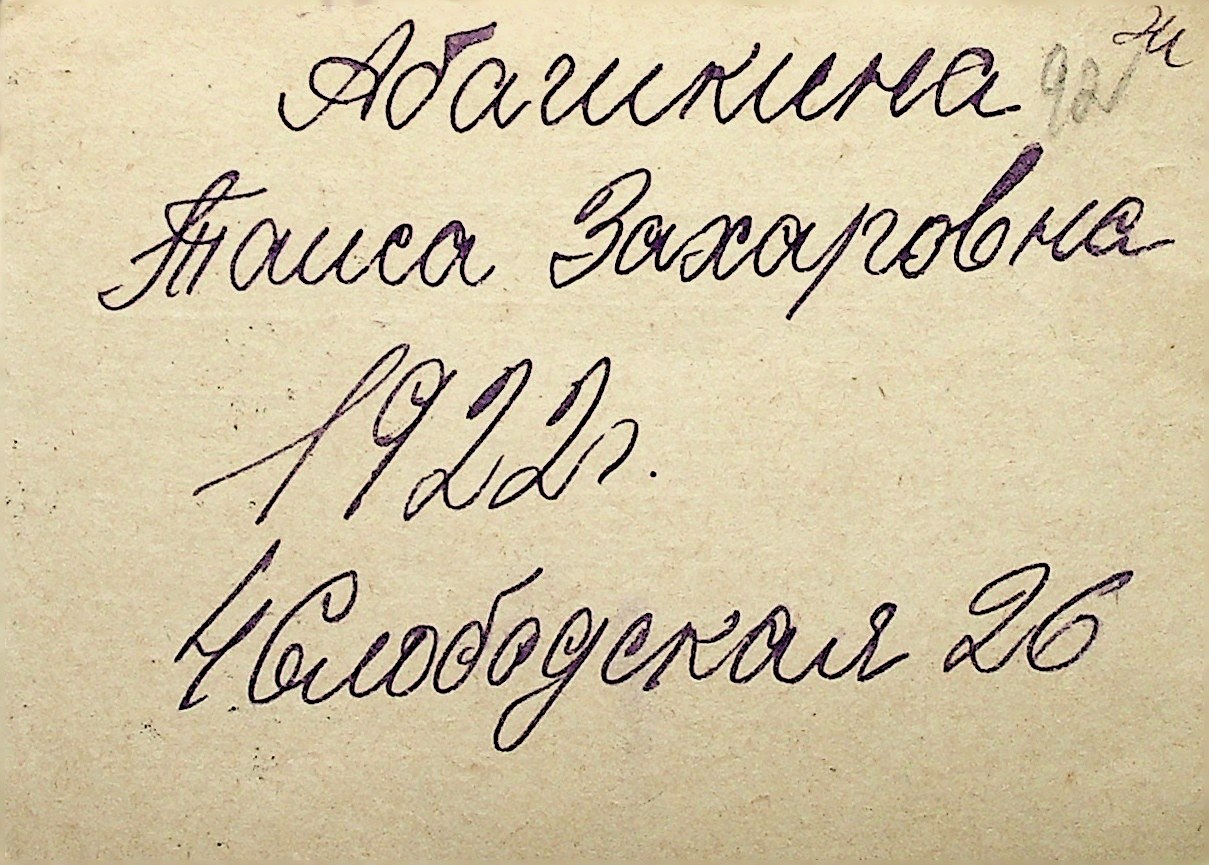 Абашкина 92
Таиса Захаровна
1922г.
4 Слободская 26